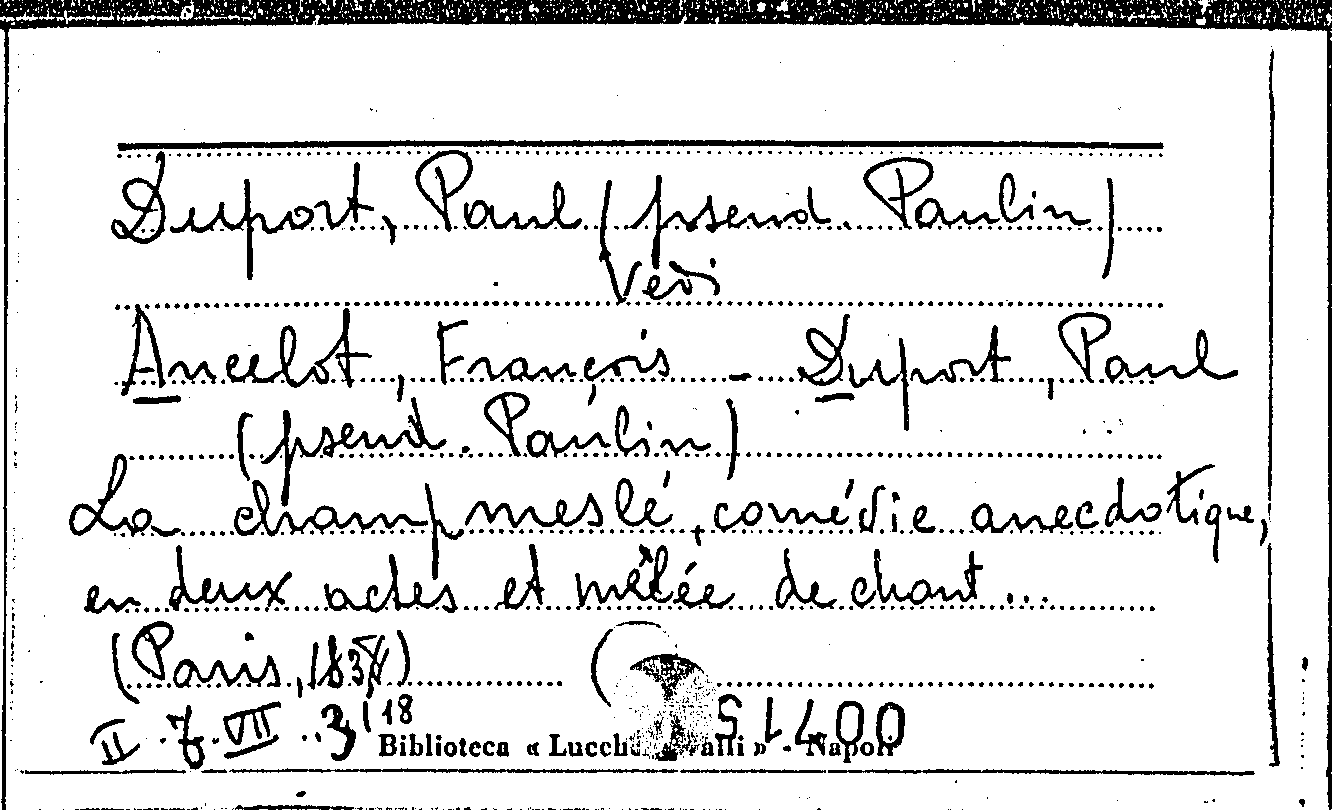 Duport, Paul (pseud. Paulin)
Vedi
Ancelot, François - Duport, Paul
(pseud. Paulin)
La champmeslé, comédie anecdotique,
en deux actes et mêlée de chant...
(Paris, 183
II. Z. VII. 3/18
51700
Biblioteca « Lucchesi » - Napoli